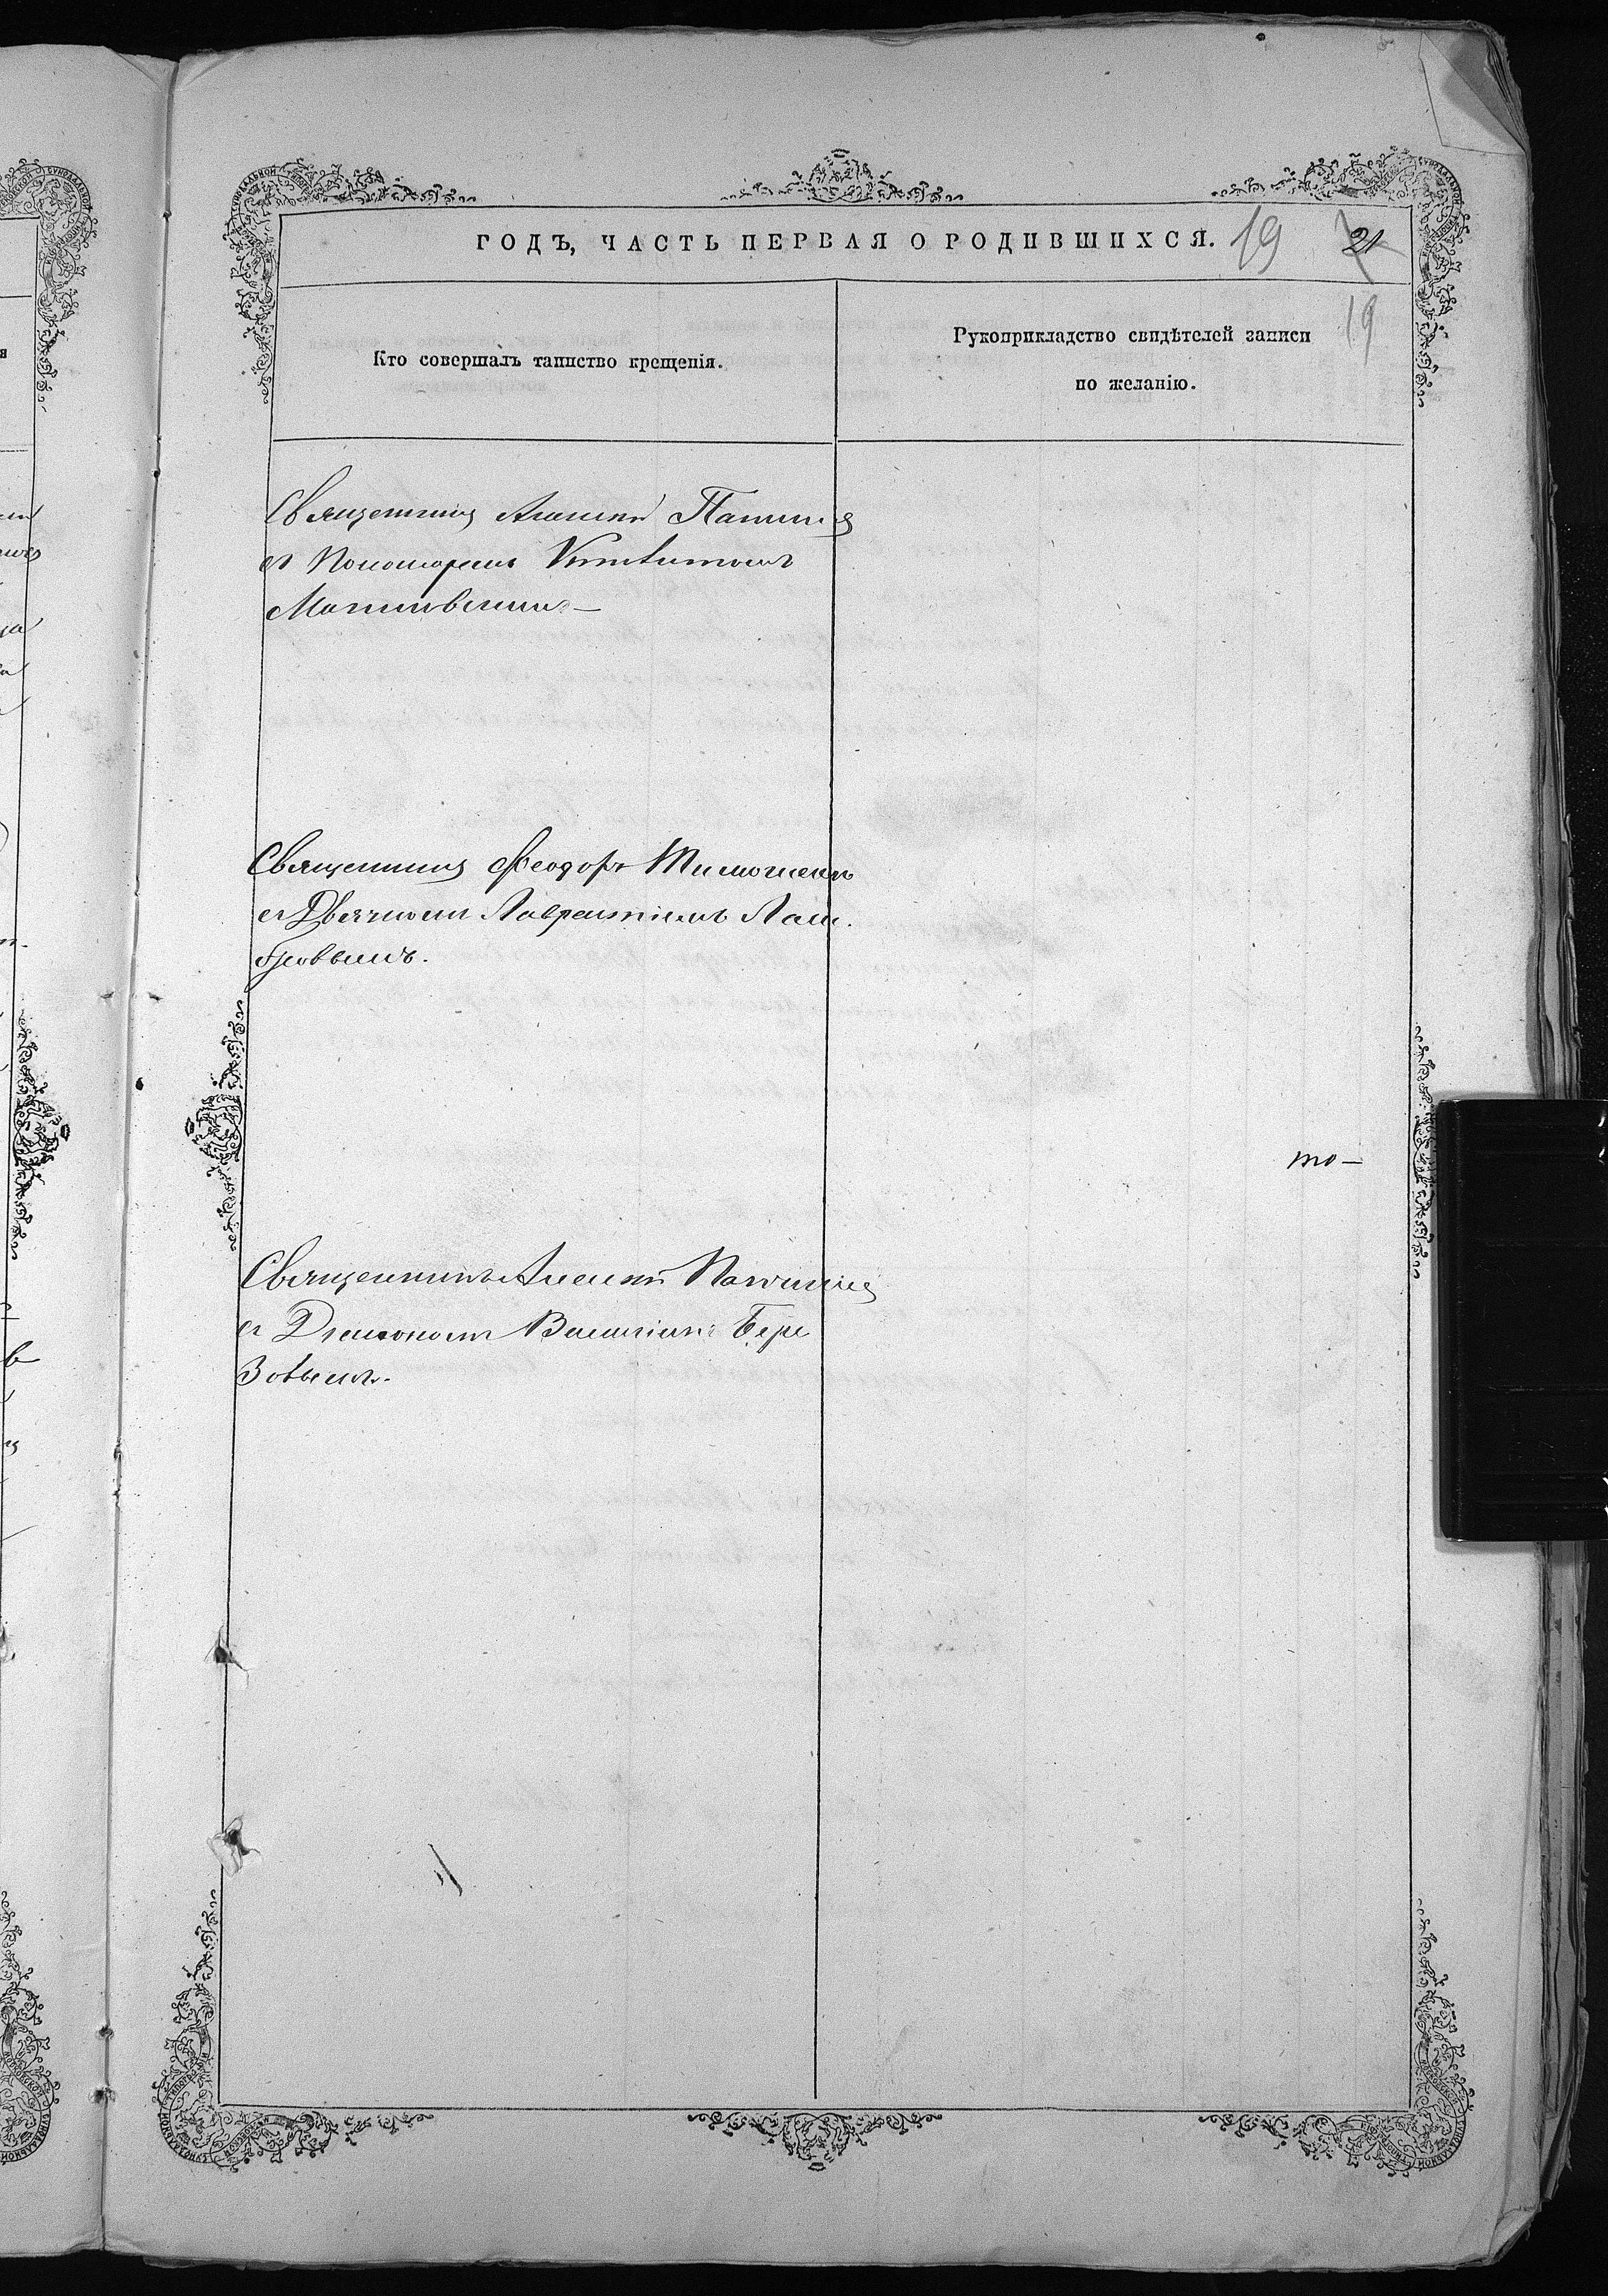 ГОДЪ, ЧАСТЬ ПЕРВАЯ О РОДИВШИХСЯ. 19 21
19
Кто совершалъ таинство крещенія.
Рукоприкладство свидѣтелей записи
по желанію.
Священникъ Алексѣй
съ Пономаремъ
Священникъ Ѳеодоръ
съ Дьячкомъ Лаврентіемъ Лам-
бровымъ.
то-
Священникъ Алексѣй
съ Діакономъ Василіемъ Бере
зовымъ.